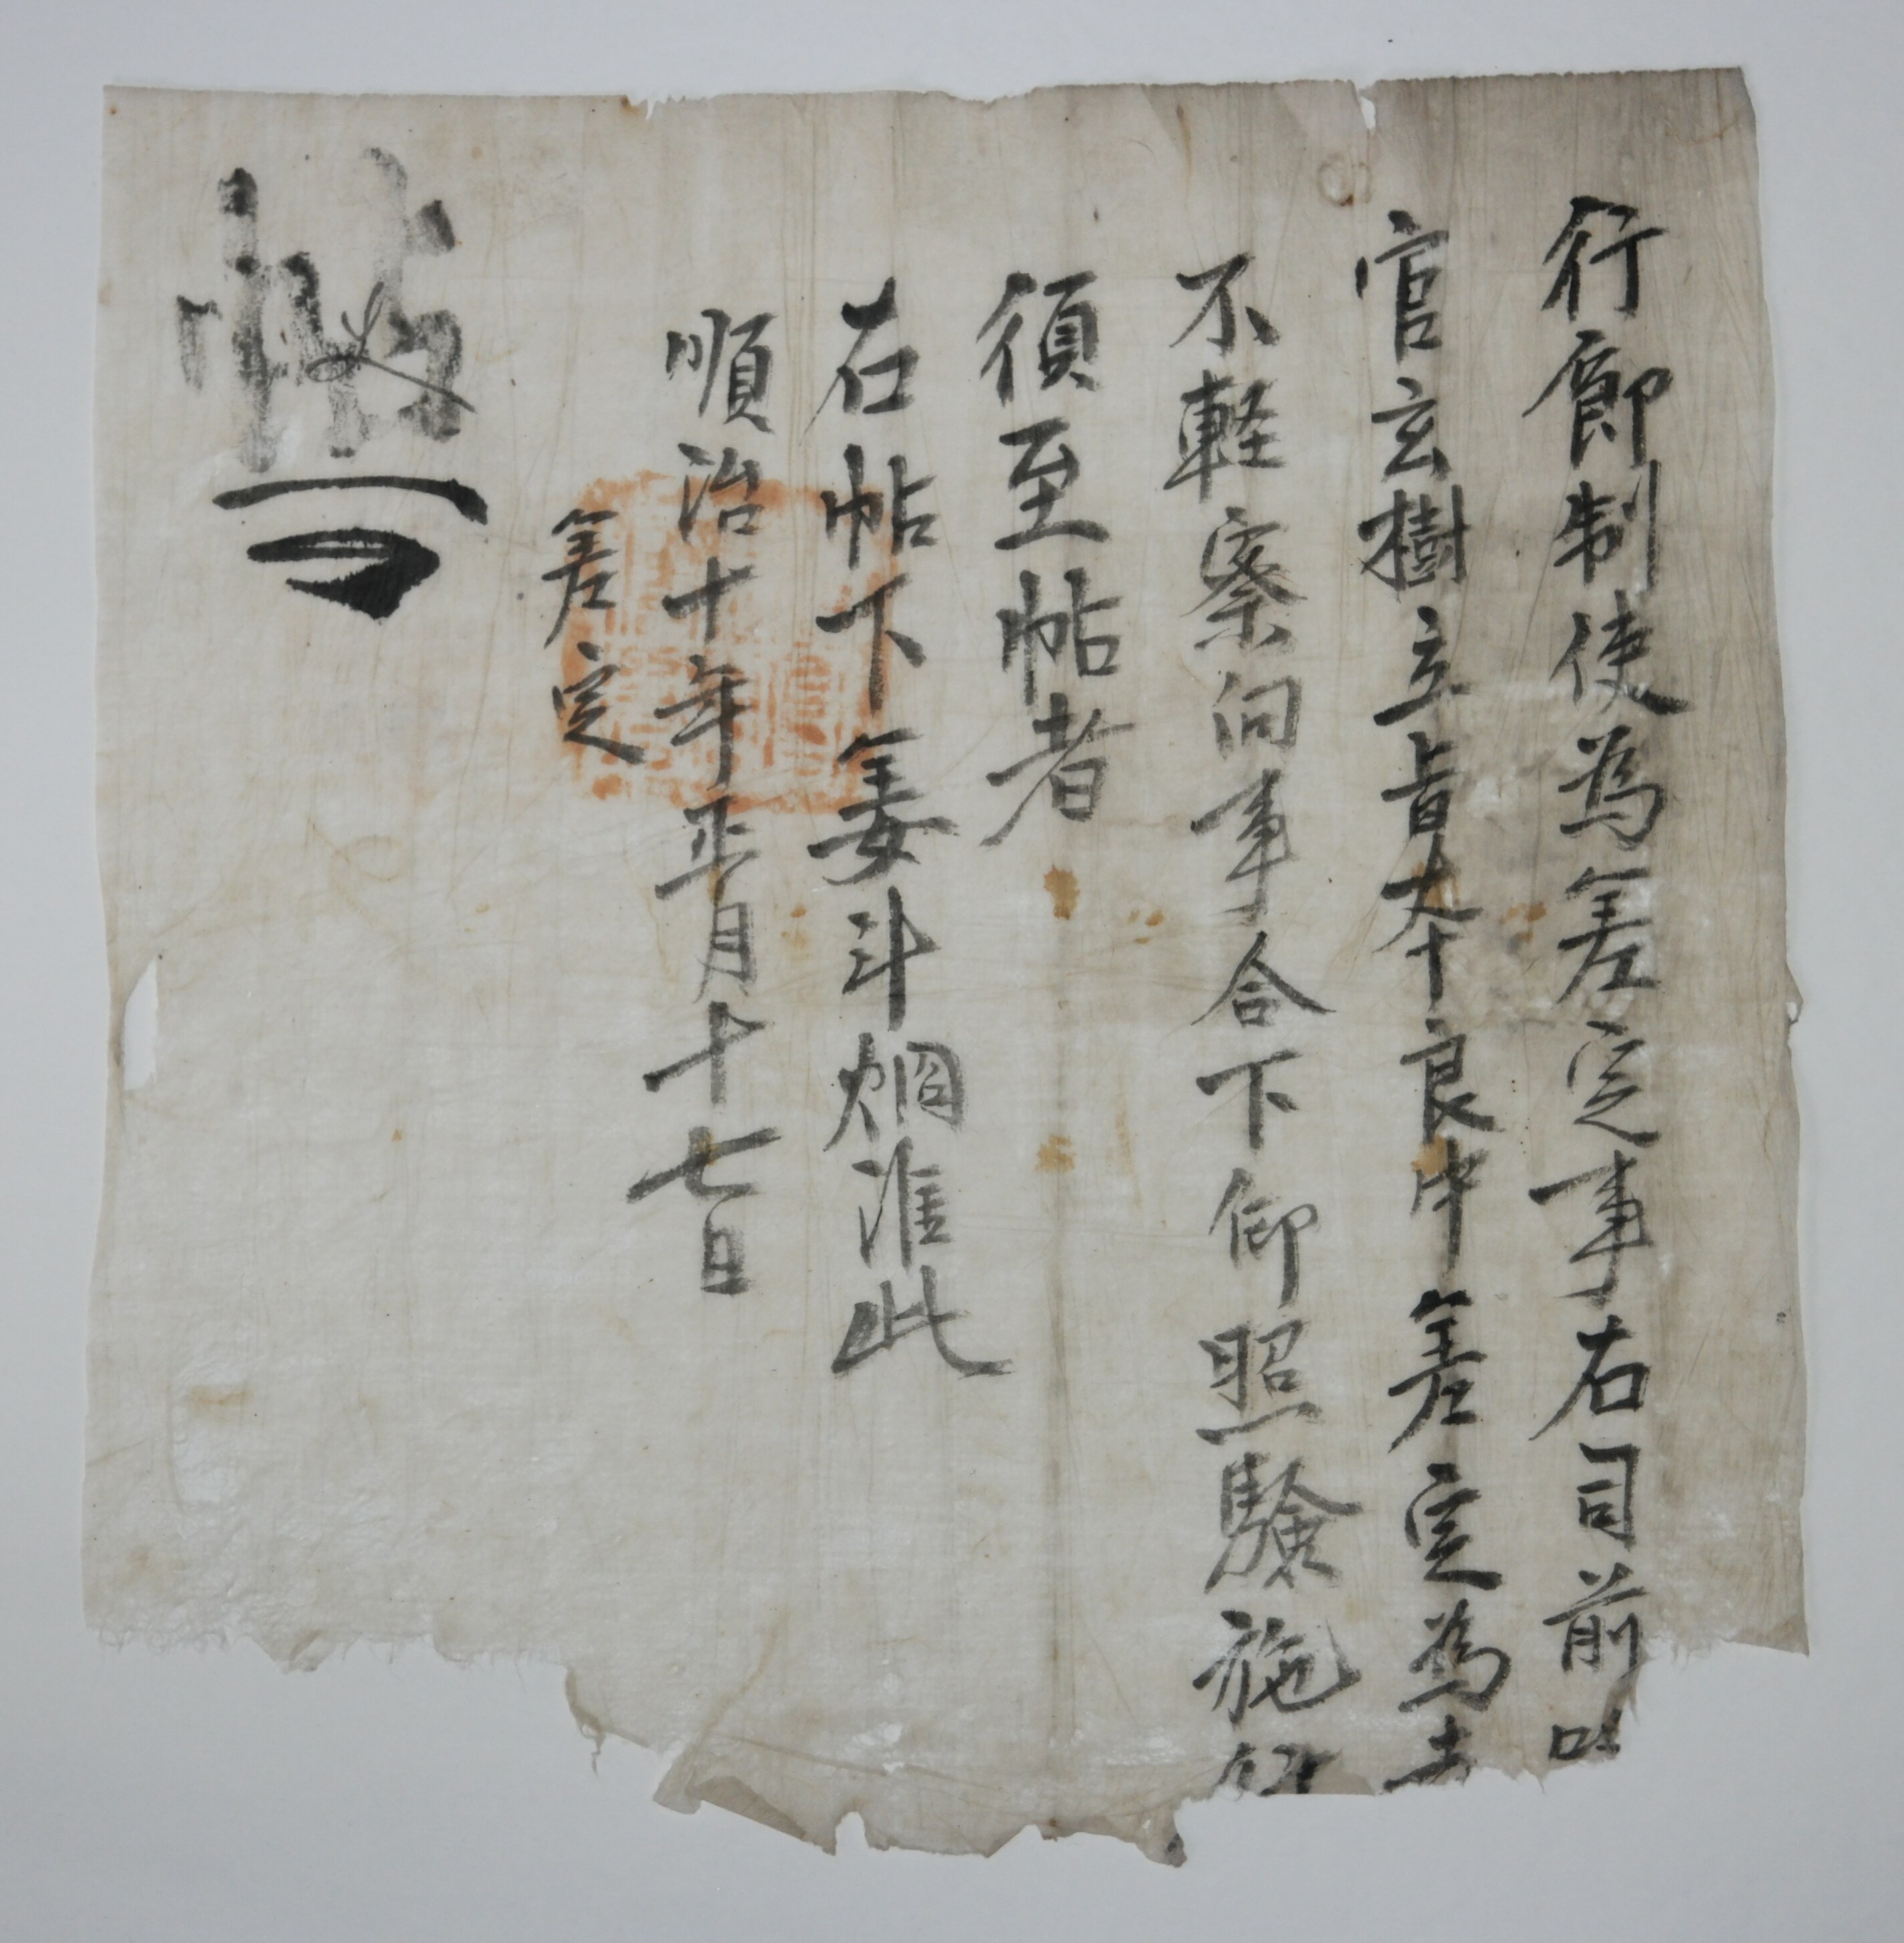 行節制使為差定事右司前
官玄樹立旨本良中差定為
不軽案向事合下仰照驗施行
須至帖者
右帖下姜斗烟准此
順治十年正月十七日
差定
帖